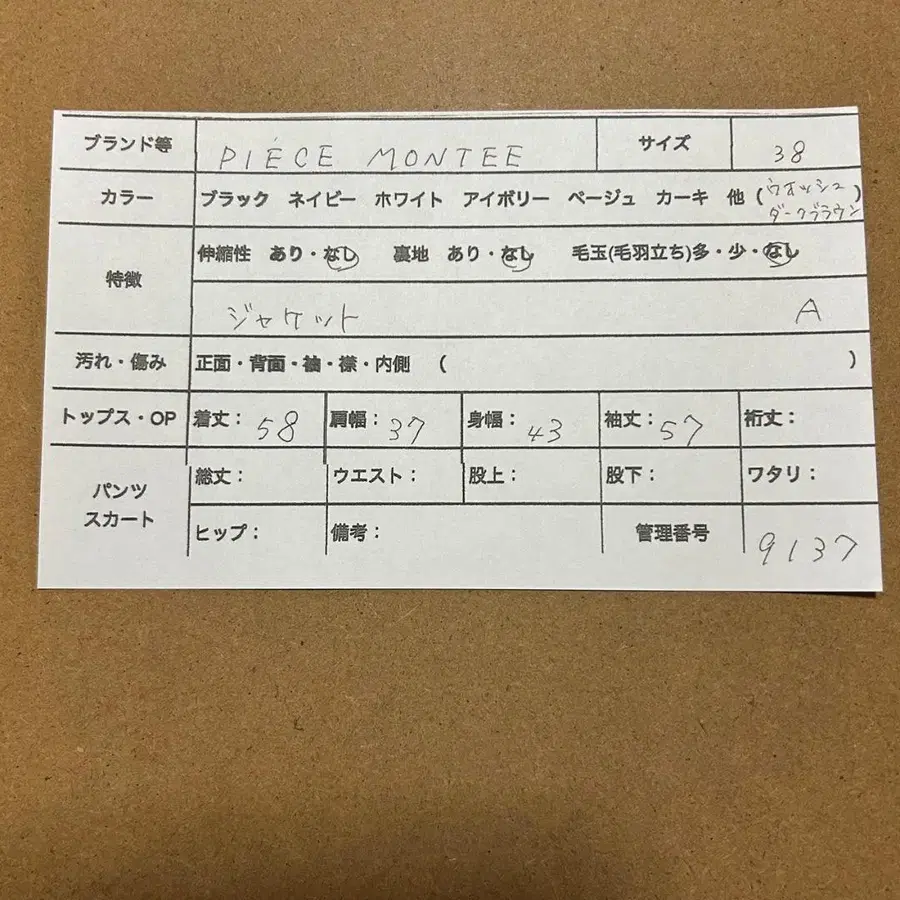 ブランド等 PIÉCE MONTEE サイズ 38
カラー ブラック ネイビー ホワイト アイボリー ベージュ カーキ 他 (ウオッシュ ダークブラウン)
特徴 伸縮性 あり・なし 裏地 あり・なし 毛玉(毛羽立ち)多・少・なし
ジャケット A
汚れ・傷み 正面・背面・袖・襟・内側 ( )
トップス・OP 着丈: 58 肩幅: 37 身幅: 43 袖丈: 57 裄丈:
パンツ スカート 総丈: ウエスト: 股上: 股下: ワタリ:
ヒップ: 備考: 管理番号 9137